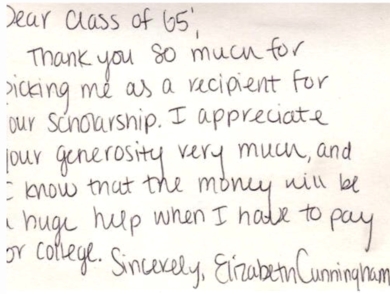 Dear Class of 65',
Thank you so much for
picking me as a recipient for
your scholarship. I appreciate
your generosity very much, and
I know that the money will be
a huge help when I have to pay
for college. Sincerely, Elizabeth Cunningham